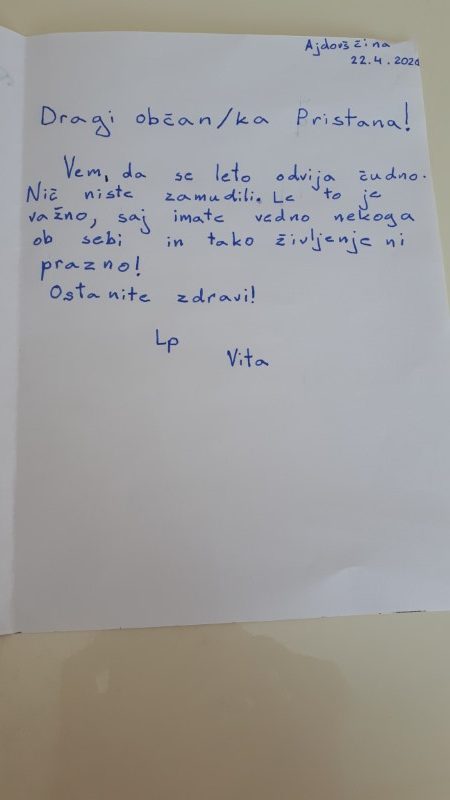 Ajdovščina
22.4.2020
Dragi občan/ka Pristana!
Vem, da se leto odvija čudno.
Nič niste zamudili. Le to je
važno, saj imate vedno nekoga
ob sebi in tako življenje ni
prazno!
Ostanite zdravi!
Lp
Vita